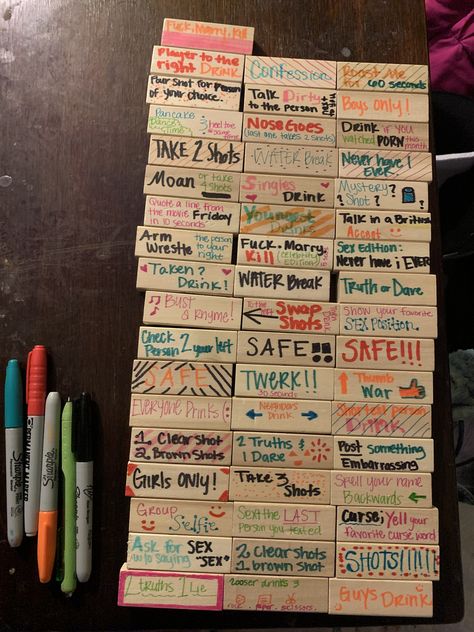 Fuck, Marry, Kill
Player to the
right DRINK
Confession
Roast Me
for 60 seconds
Pour Shot for Person
of your choice.
Talk Dirty
to the person
Boys only!
Pancake
Dance
Time
Nose Goes
(last one takes 2 shots)
Drink if you
watched PORN this
month
TAKE 2 Shots
WATER Break
Never have I
Ever
Moan or take
4 shots
Singles
Drink
Mystery?
Shot?
Quote a line from
the movie Friday
in 10 seconds
Youngest
Drinks
Talk in a British
Accent
Arm
Wrestle
The person
to your
right
Fuck, Marry
Kill (celebrity
edition)
Sex Edition:
Never have i EVER
Taken?
Drink!
WATER Break
Truth or Dare
Bust
& Rhyme!
To the left
Swap
Shots
Show your favorite
SEX Position.
Check
Person 2 your left
SAFE!!
SAFE!!!
SAFE
TWERK!!
30 seconds
Thumb
War
Everyone Drinks!
Neighbors
Drink
Shortest person
DRINK
1 Clear Shot
2 Brown Shots
2 Truths &
1 Dare
Post Something
Embarrassing
Girls Only!
Take 3
Shots
Spell your name
Backwards
Group
Selfie
Sext the LAST
Person you texted
Curse; Yell your
favorite curse word
Ask for SEX
w/o saying "SEX"
2 clear shots
1 brown shot
SHOTS!!!!!
2 truths 1 Lie
Looser drinks 3
rock, paper, scissors
Guys Drink
Sharpie